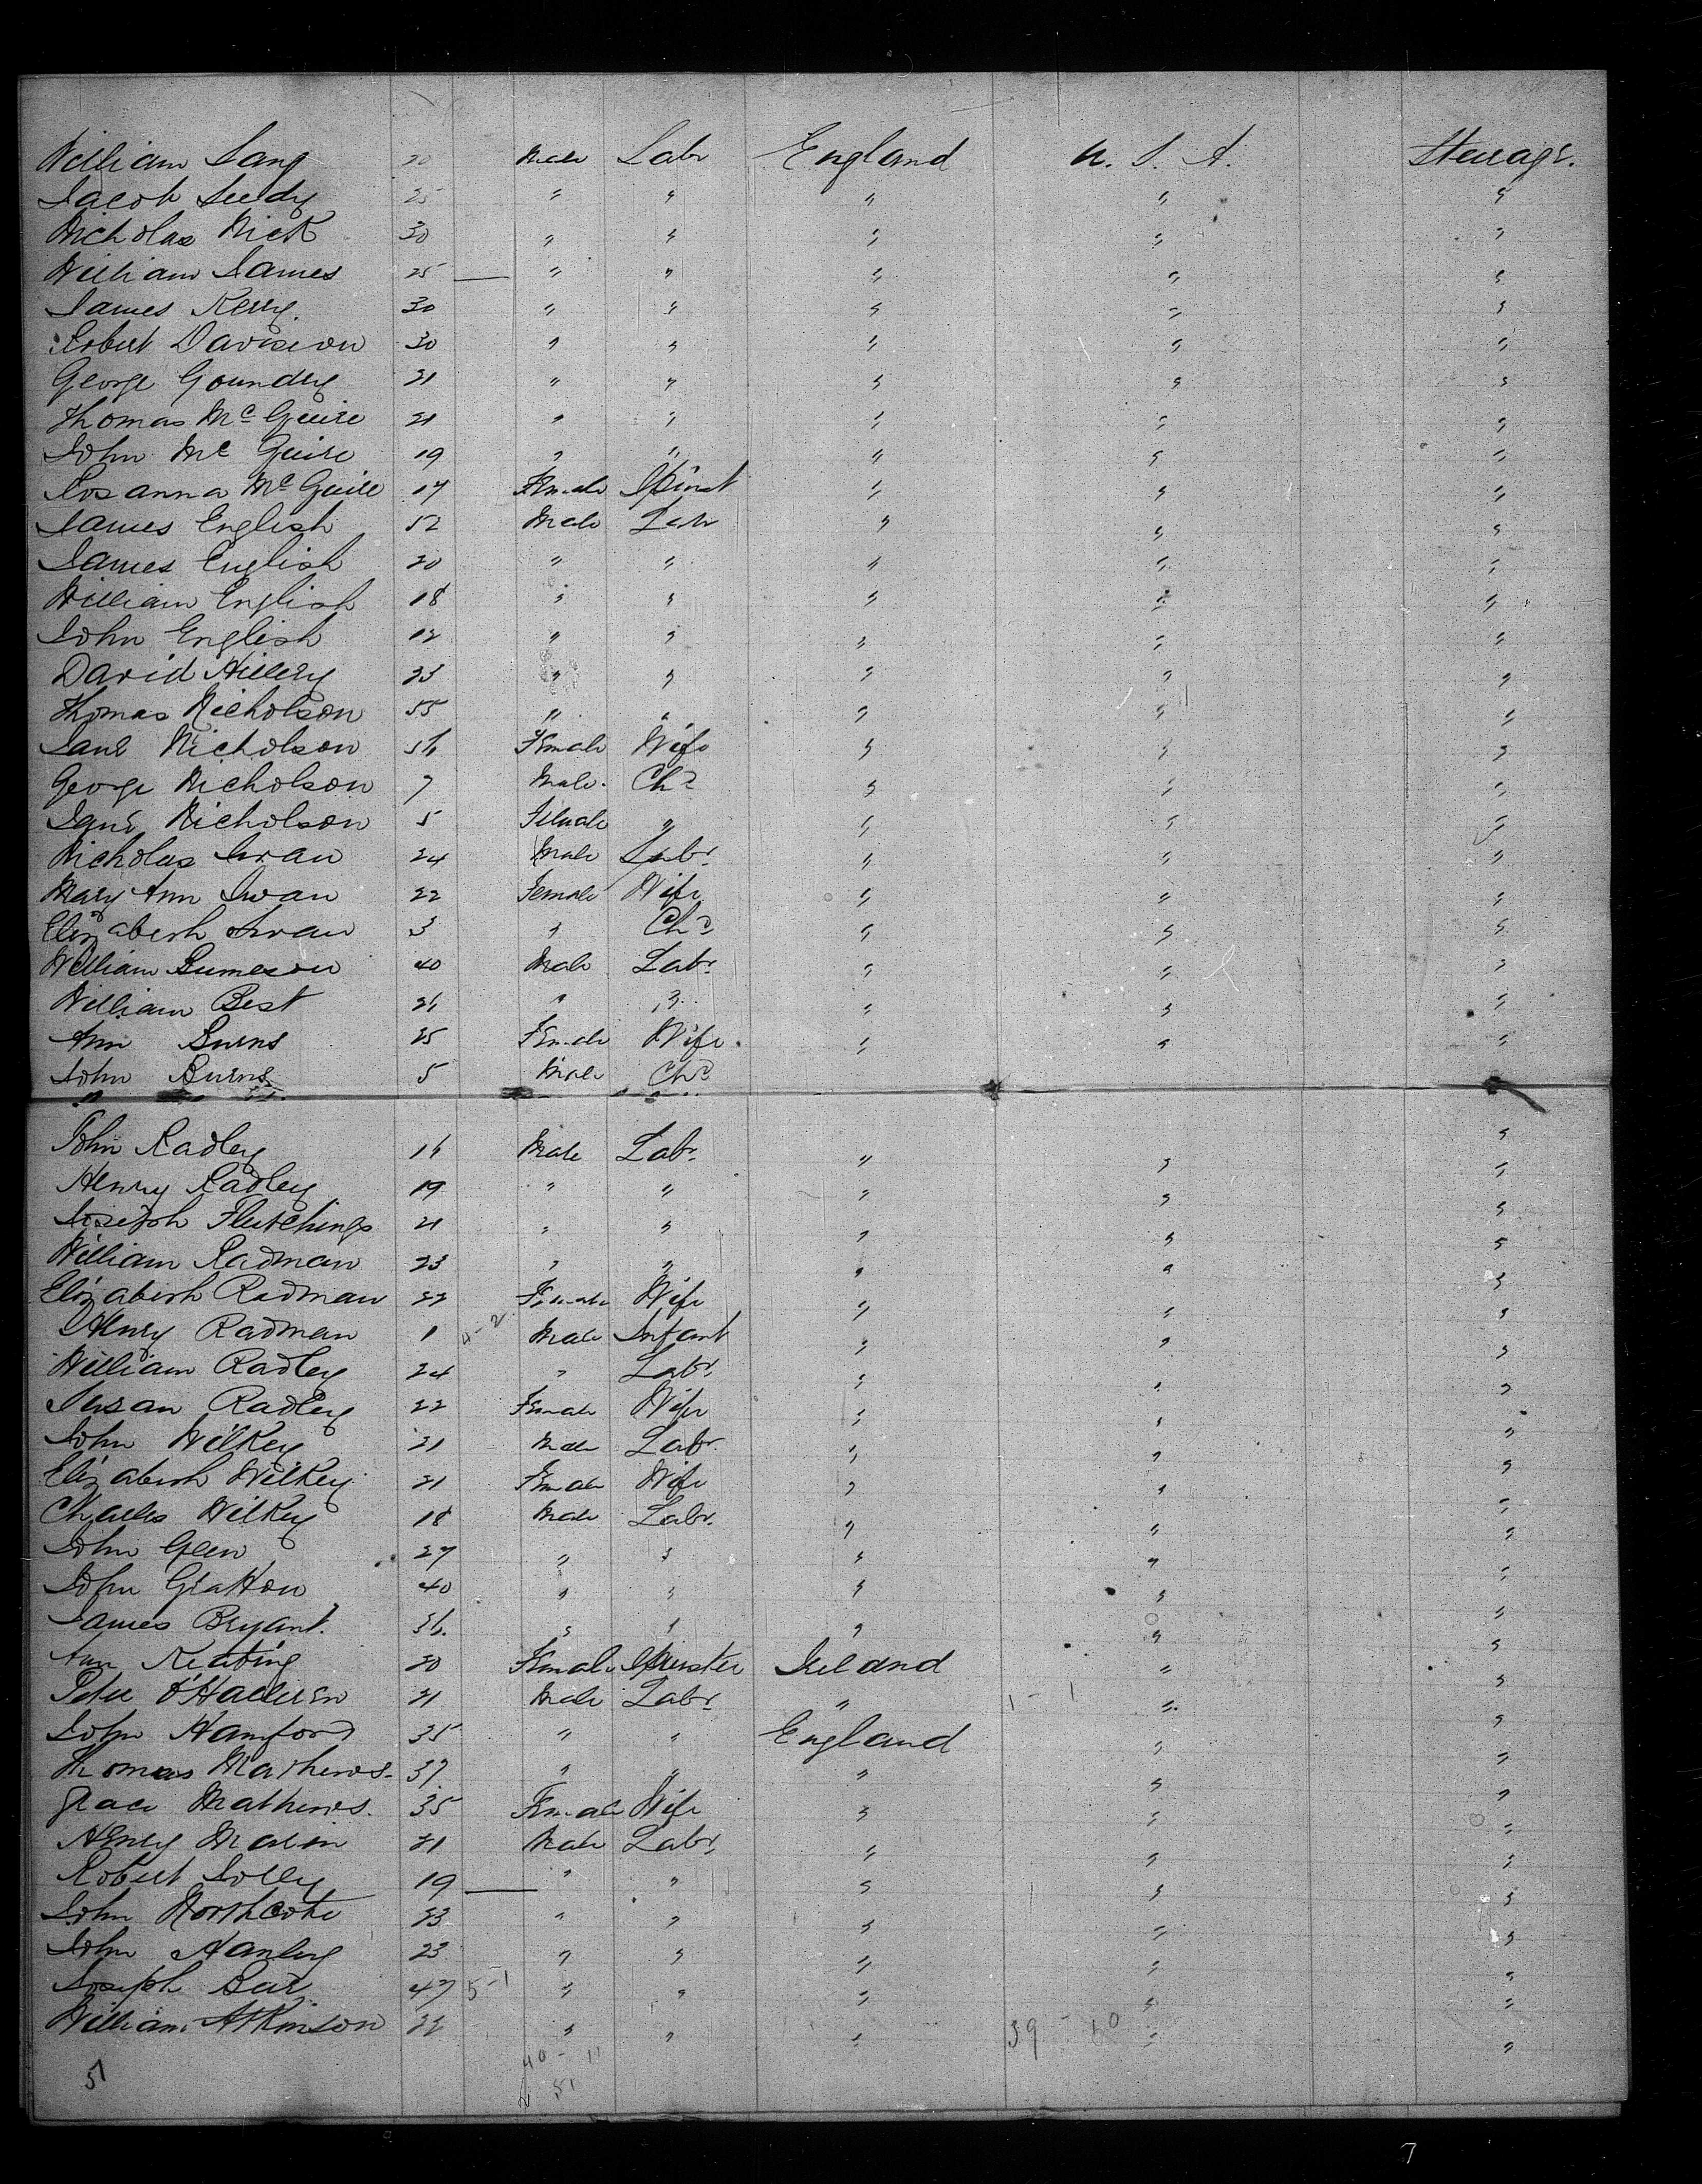 William Lang 20 Male Labr England U. S. A. Steerage.
Jacob Leedy 25 " " " " "
Nicholas Nick 30 " " " " "
William James 25 — " " " " "
James Kerry. 30 " " " " "
Robert Davison 30 " " " " "
George Goundry 21 " " " " "
Thomas McGuire 21 " " " " "
John McGuire 19 " " " " "
Rosanna McGuire 17 Female Spinst " " "
James English 52 Male Labr " " "
James English 20 " " " " "
William English 18 " " " " "
John English 12 " " " " "
David Hillery 23 " " " " "
Thomas Nicholson 55 " " " " "
Jane Nicholson 56 Female Wife " " "
George Nicholson 7 Male. Chd " " "
Jane Nicholson 5 Female " " " "
Nicholas Swan 24 Male Labr " " "
Mary Ann Swan 22 Female Wife " " "
Elizabeth Swan 3 " Chd " " "
William Jameson 40 Male Labr " " "
William Best 26 " " " " "
Ann Burns 25 Female Wife. " " "
John Burns 5 Male Chd
John Radley 16 Male Labr. " " "
Henry Radley 19 " " " " "
Joseph Flutchings 21 " " " " "
William Radman 23 " " " " "
Elizabeth Radman 22 Female Wife " " "
Henry Radman 1 4-2 Male Infant " " "
William Radley 24 " Labr " " "
Susan Radley 22 Female Wife " " "
John Wilkey 21 Male Labr. " " "
Elizabeth Wilkey 21 Female Wife " " "
Charles Wilkey 18 Male Labr. " " "
John Glen 27 " " " " "
John Gratton 40 " " " " "
James Bryant. 36. " " " " "
Ann Keating 20 Female Spinster Ireland " "
Peter O'Halleren 21 Male Labr " 1-1 " "
John Hamford 35 " " England " "
Thomas Mathews. 37 " " " " "
Grace Mathews. 35 Female Wife " " "
Henry Marin 21 Male Labr " " "
Robert Jolly 19 — " " " " "
John Northcote 23 " " " " "
John Hanley 23 " " " " "
Joseph Bar 47 5-1 " " " " "
William Atkinson 22 " " " 39 - 60 " "
51 40 - 11
51
7